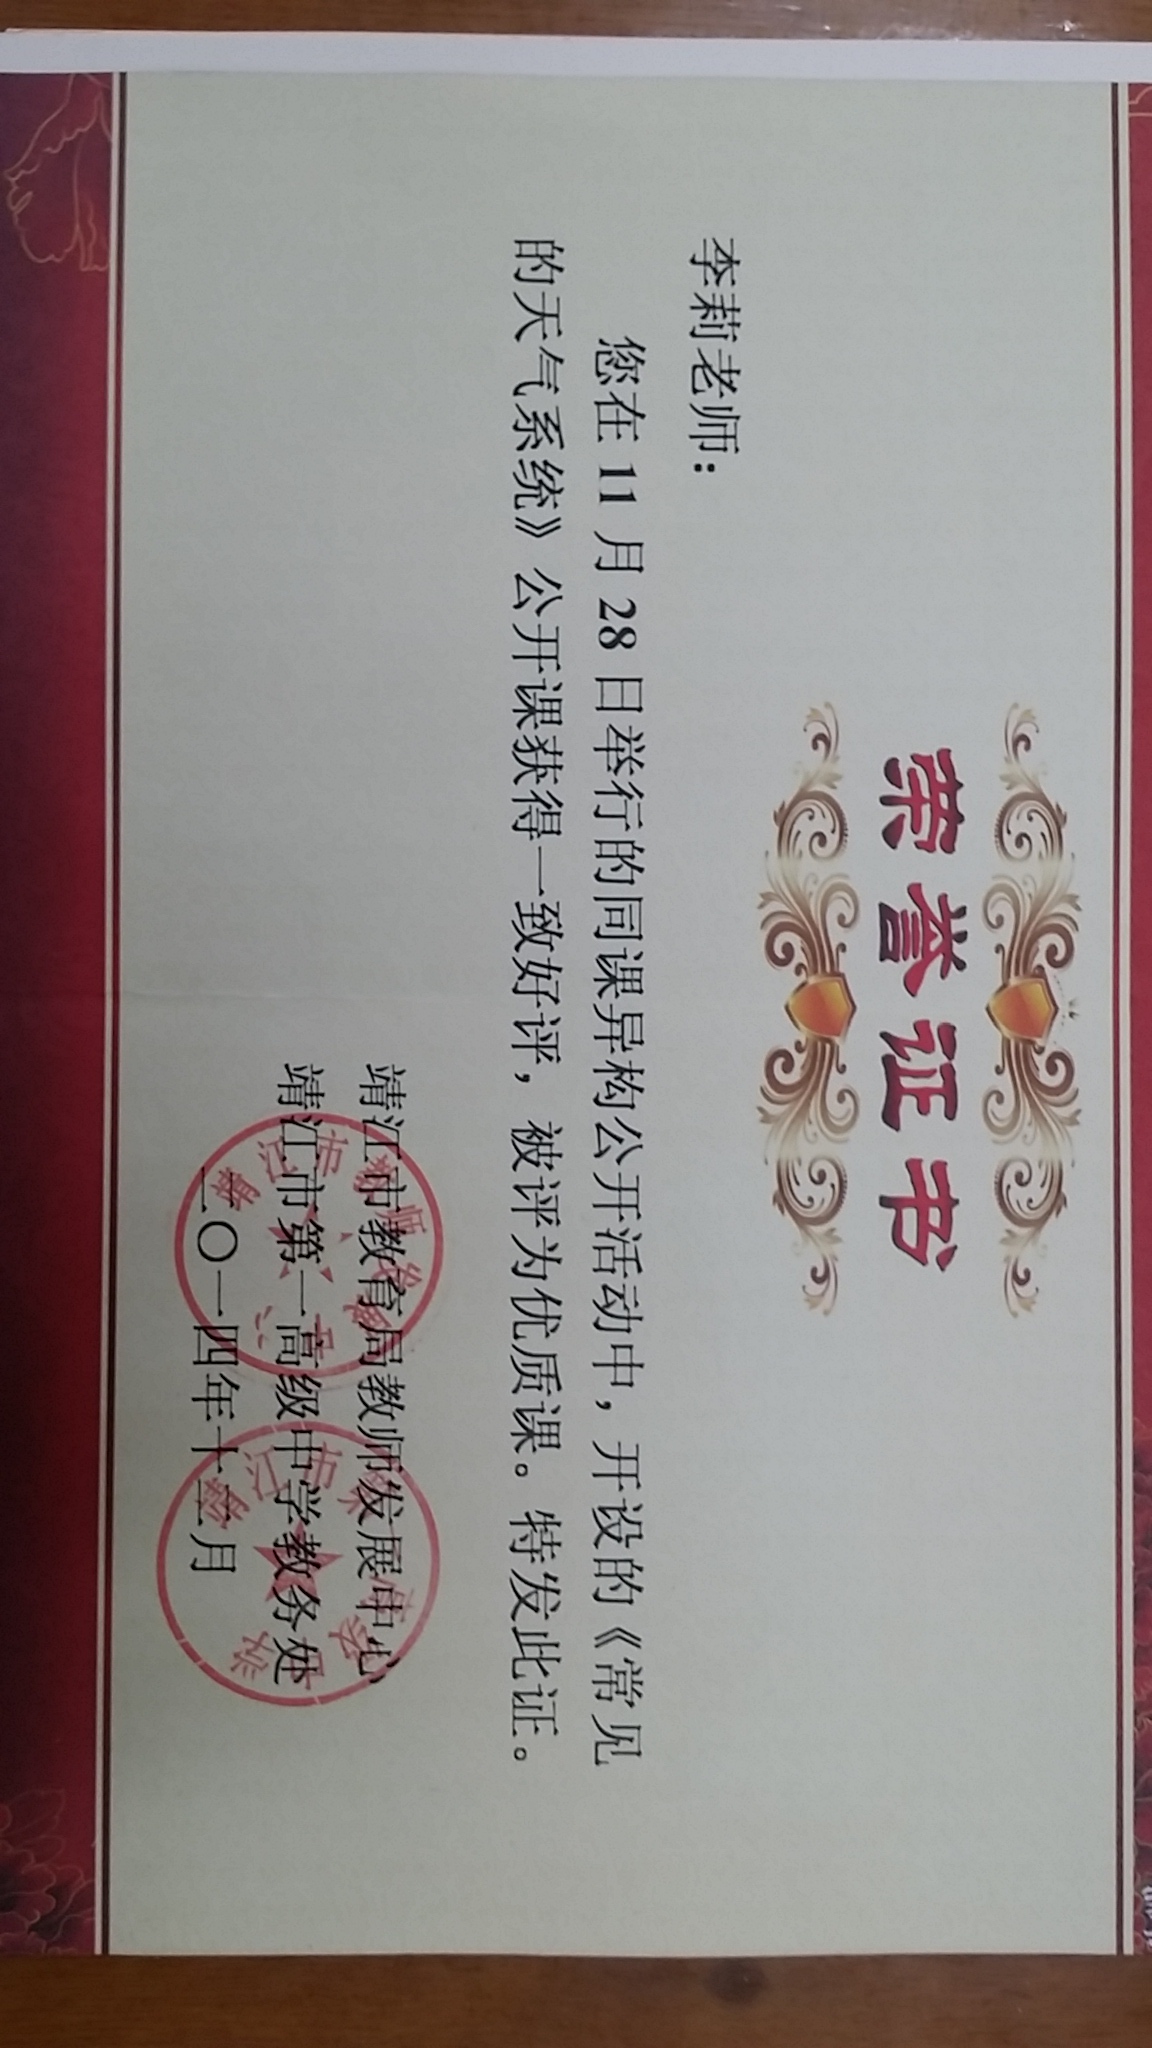 荣誉证书
李莉老师：
您在 11 月 28 日举行的同课异构公开活动中，开设的《常见
的天气系统》公开课获得一致好评，被评为优质课。特发此证。
靖江市教育局教师发展中心
靖江市第一高级中学教务处
二〇一四年十二月
靖江市教师发展
靖江市第